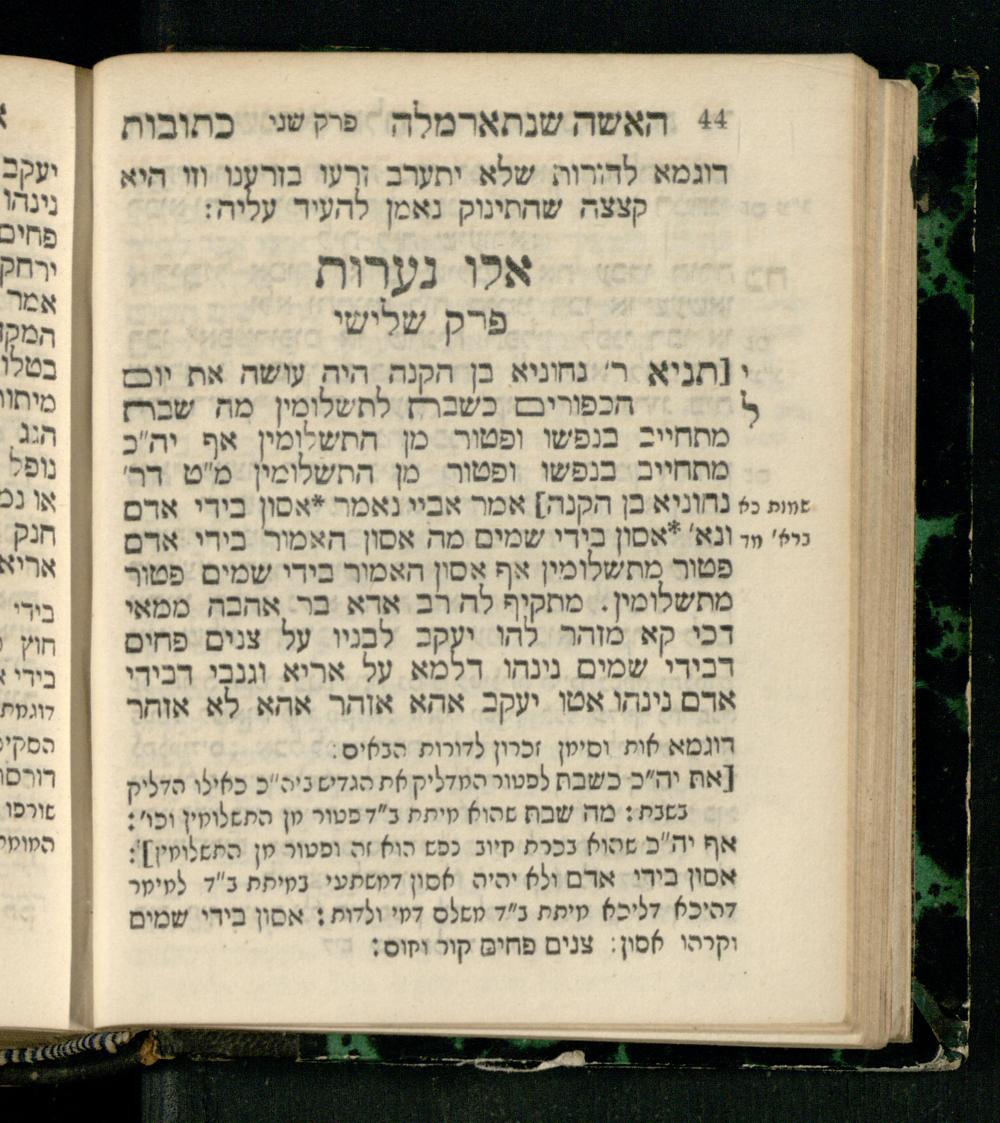 44 האשה שנתארמלה פרק שני כתובות
דוגמא לדורות שלא יתערב זרעו בזרענו וזו היא
קצצה שהתינוק נאמן להעיד עליה:
אלו נערות
פרק שלישי
י [תניא ר' נחוניא בן הקנה היה עושה את יום
ל הכפורים כשבת לתשלומין מה שבת
מתחייב בנפשו ופטור מן התשלומין אף יה"כ
מתחייב בנפשו ופטור מן התשלומין מ"ט דר'
שמות כא נחוניא בן הקנה] אמר אביי נאמר *אסון בידי אדם
ברא' מד ונא' *אסון בידי שמים מה אסון האמור בידי אדם
פטור מתשלומין אף אסון האמור בידי שמים פטור
מתשלומין. מתקיף לה רב אדא בר אהבה ממאי
דכי קא מזהר להו יעקב לבניו על צנים פחים
דבידי שמים נינהו דלמא על אריא וגנבי דבידי
אדם נינהו אטו יעקב אהא אזהר אהא לא אזהר
דוגמא אות וסימן זכרון לדורות הבאים:
[את יה"כ כשבת לפטור המדליק את הגדיש ביה"כ כאילו הדליק
בשבת: מה שבת שהוא מיתת ב"ד פטור מן התשלומין וכו':
אף יה"כ שהוא בכרת חיוב נפש הוא זה ופטור מן התשלומין]:
אסון בידי אדם ולא יהיה אסון דמשתעי במיתת ב"ד למימר
דהיכא דליכא מיתת ב"ד משלם דמי ולדות: אסון בידי שמים
וקרהו אסון: צנים פחים קור וחום:
יעקב
נינהו
פחים
ירחק
אמר
המקו
בטלו
מיתות
הגג
נופל
או נמ
חנק
אריא
בידי
חוץ
בידי א
דוגמת
הסקי
דורסו
שורפו